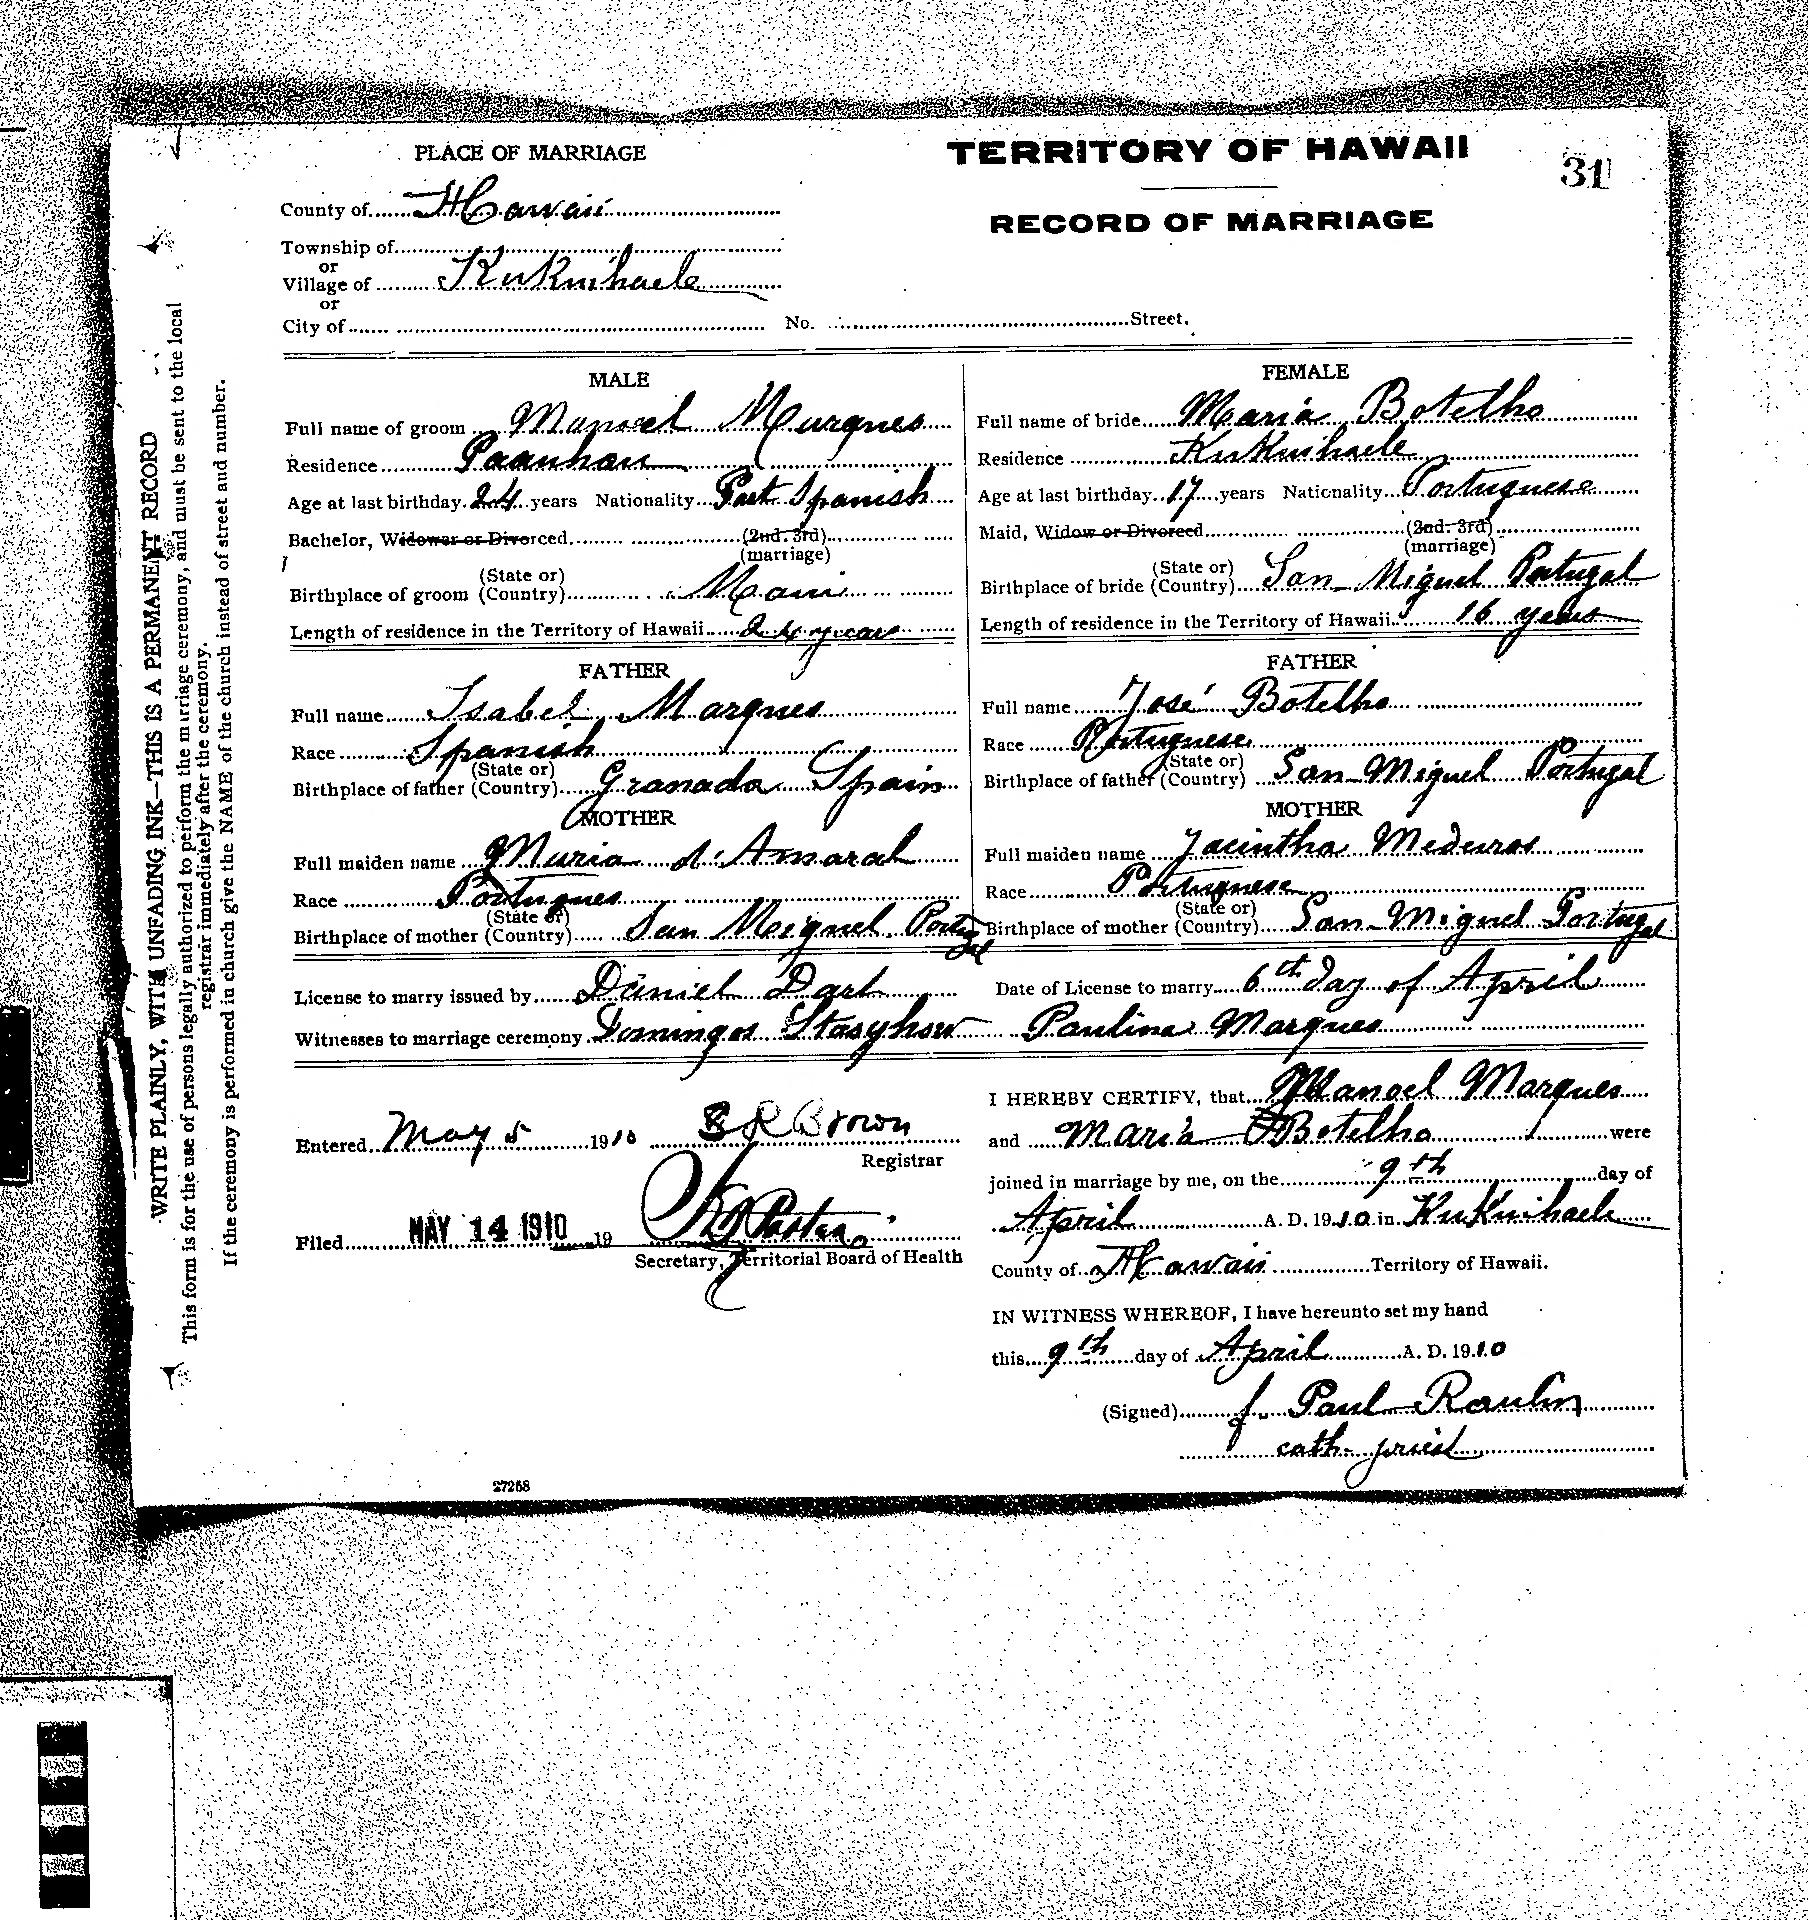 PLACE OF MARRIAGE
TERRITORY OF HAWAII
31
County of Hawaii
RECORD OF MARRIAGE
Township of
or
Village of Kukuihaele
or
City of No. Street.
MALE
Full name of groom Manoel Marques
Residence Paauhau
Age at last birthday 24 years Nationality Part Spanish
Bachelor, Widower or Divorced (2nd. 3rd)
(marriage)
(State or)
Birthplace of groom (Country) Maui
Length of residence in the Territory of Hawaii 24 years
FATHER
Full name Isabel Marques
Race Spanish
(State or)
Birthplace of father (Country) Granada Spain
MOTHER
Full maiden name Maria d'Amaral
Race Portugues
(State or)
Birthplace of mother (Country) San Miguel Portugal
FEMALE
Full name of bride Maria Botelho
Residence Kukuihaele
Age at last birthday 17 years Nationality Portuguese
Maid, Widow or Divorced (2nd 3rd)
(marriage)
(State or)
Birthplace of bride (Country) San-Miguel Portugal
Length of residence in the Territory of Hawaii 16 years
FATHER
Full name José Botelho
Race Portuguese
(State or)
Birthplace of father (Country) San-Miguel Portugal
MOTHER
Full maiden name Jacintha Medeiros
Race Portuguese
(State or)
Birthplace of mother (Country) San-Miguel Portugal
License to marry issued by Daniel Date of License to marry 6th day of April
Witnesses to marriage ceremony Domingos Paulina Marques
Entered May 5 1910 Brown
Registrar
Filed MAY 14 1910 19
Secretary, Territorial Board of Health
I HEREBY CERTIFY, that Manoel Marques
and Maria Botelho were
joined in marriage by me, on the 9th day of
April A. D. 1910 in Kukuihaele
County of Hawaii Territory of Hawaii.
IN WITNESS WHEREOF, I have hereunto set my hand
this 9th day of April A. D. 1910
(Signed) f. Paul Raulin
cath. priest
27258
WRITE PLAINLY, WITH UNFADING INK—THIS IS A PERMANENT RECORD
This form is for the use of persons legally authorized to perform the marriage ceremony, and must be sent to the local
registrar immediately after the ceremony.
If the ceremony is performed in church give the NAME of the church instead of street and number.